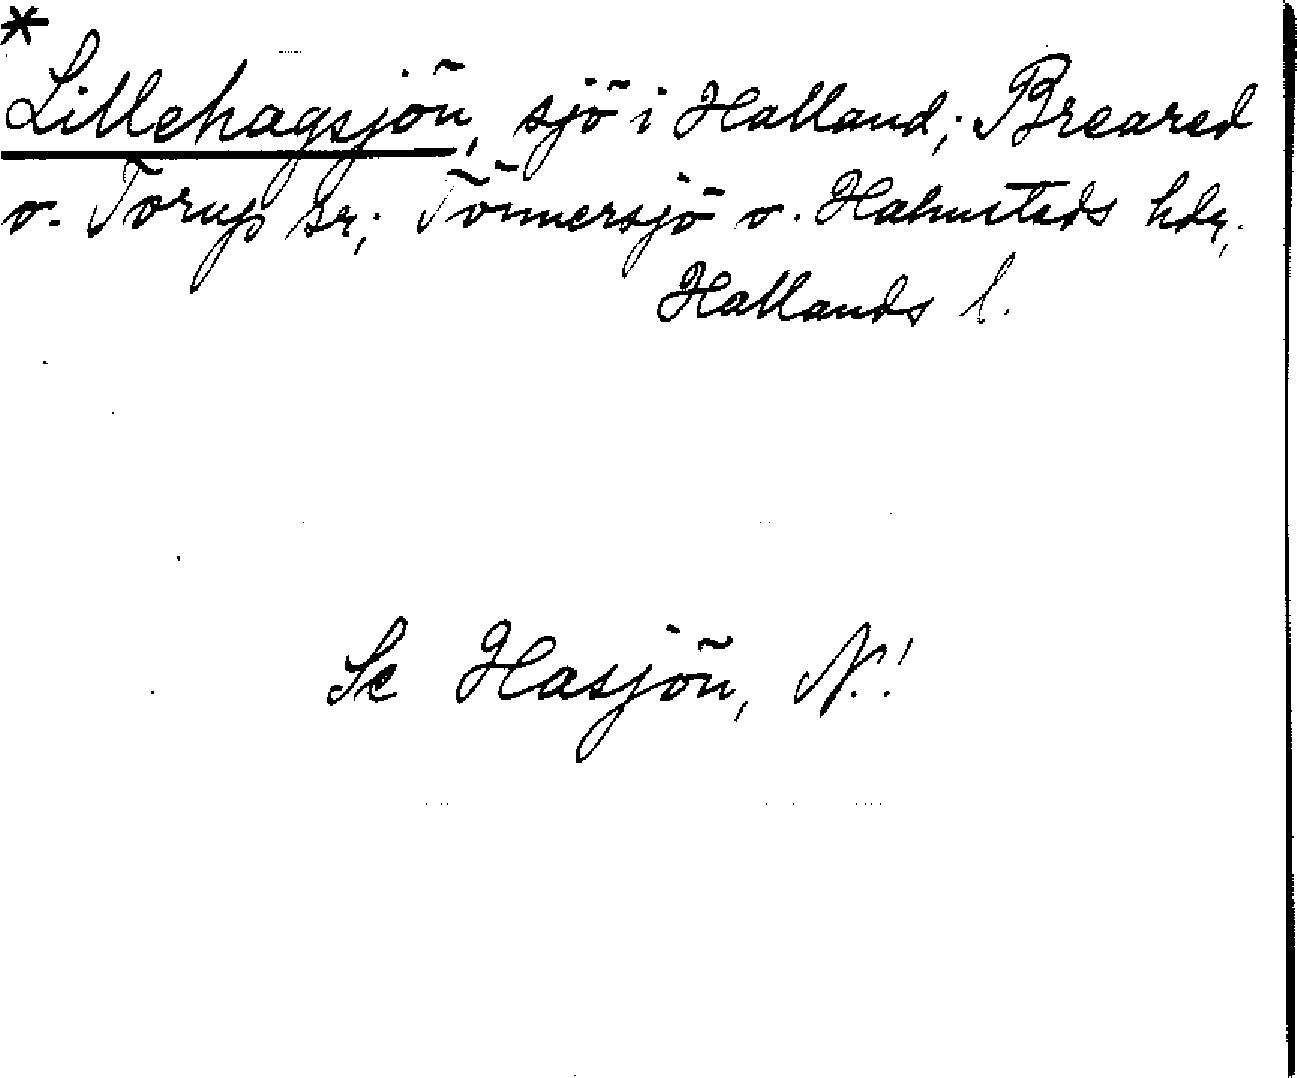 *
Lillehagsjön, sjö i Halland; Breared
o. Torup sr; Tönnersjö o. Halmstads hdr,
Hallands l.
Se Hasjön, N.!